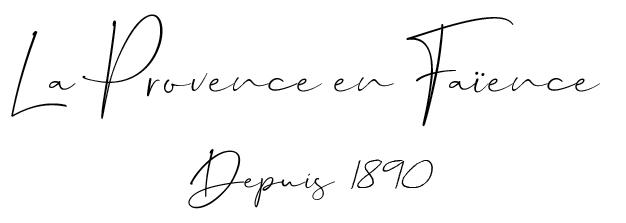 La Provence en Faïence
Depuis 1890